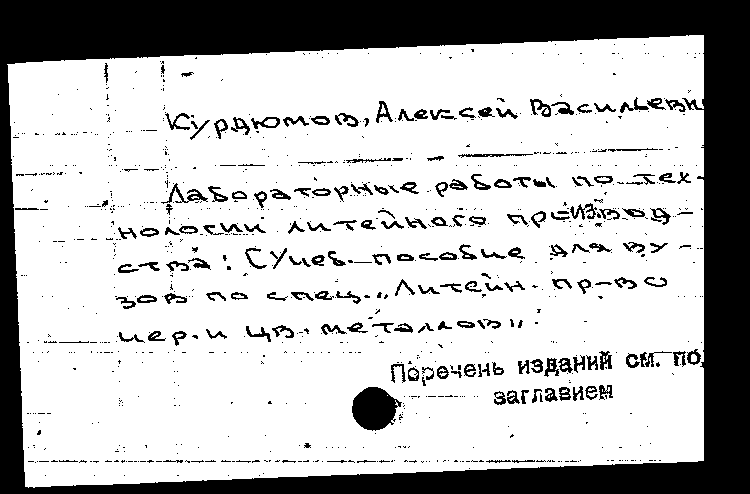 Курдюмов, Алексей Василье
Лабораторные работы по тех-
нологии литейного производ-
ства: [Учеб. пособие для ву-
зов по спец. „Литейн. пр-во
чер. и цв. металлов„.
Поречень изданий см. по
заглавием